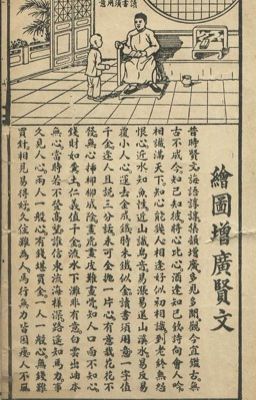 讀書須用意
繪圖增廣賢文
昔時賢文誨語諄諄集韻增廣多見多聞觀今宜鑑古無
古不成今知己知彼將心比心酒逢知己飲詩向會人吟
相識滿天下知心能幾人相逢好似初相識到老終無怨
恨心近水知魚性近山識鳥音易漲易退山溪水易反易
覆小人心運去金成鐵時來鐵似金讀書須用意一字值
千金逢人且說三分話未可全拋一片心有意栽花花不
發無心插柳柳成陰畫虎畫皮難畫骨知人口面不知心
錢財如糞土仁義值千金流水下灘非有意白雲出岫本
無心當時若不登高望誰信東流海樣深路遙知馬力事
久見人心兩人一般心有錢堪買金一人一般心無錢難
買針相見易得好久住難為人馬行無力皆因瘦人不風